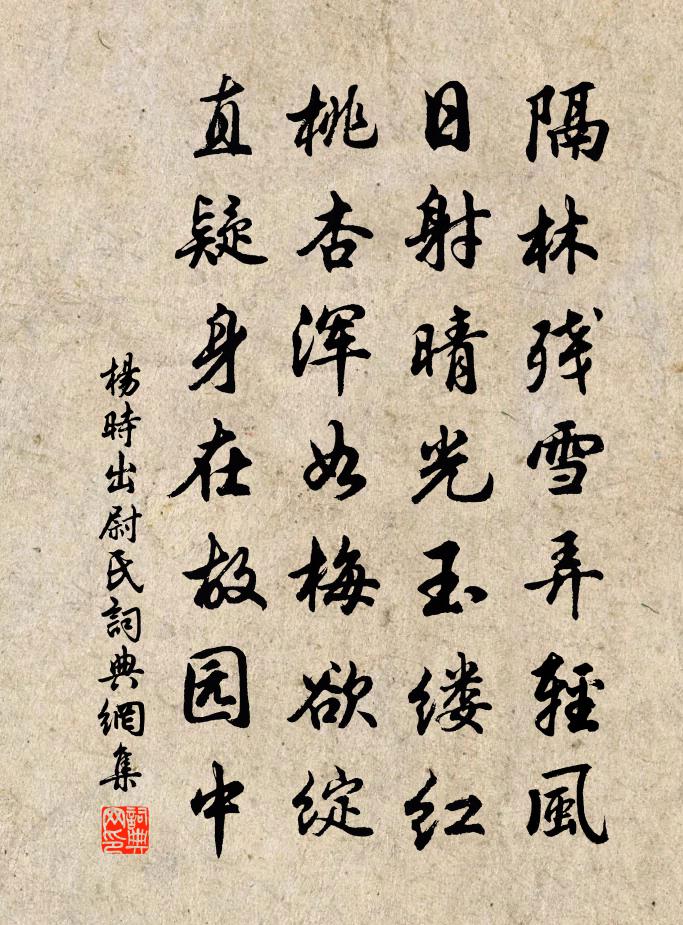 隔林残雪弄輕風
日射晴光玉缕红
桃杏浑如梅欲绽
直疑身在故园中
楊時出尉氏詞典網集
詞典网印